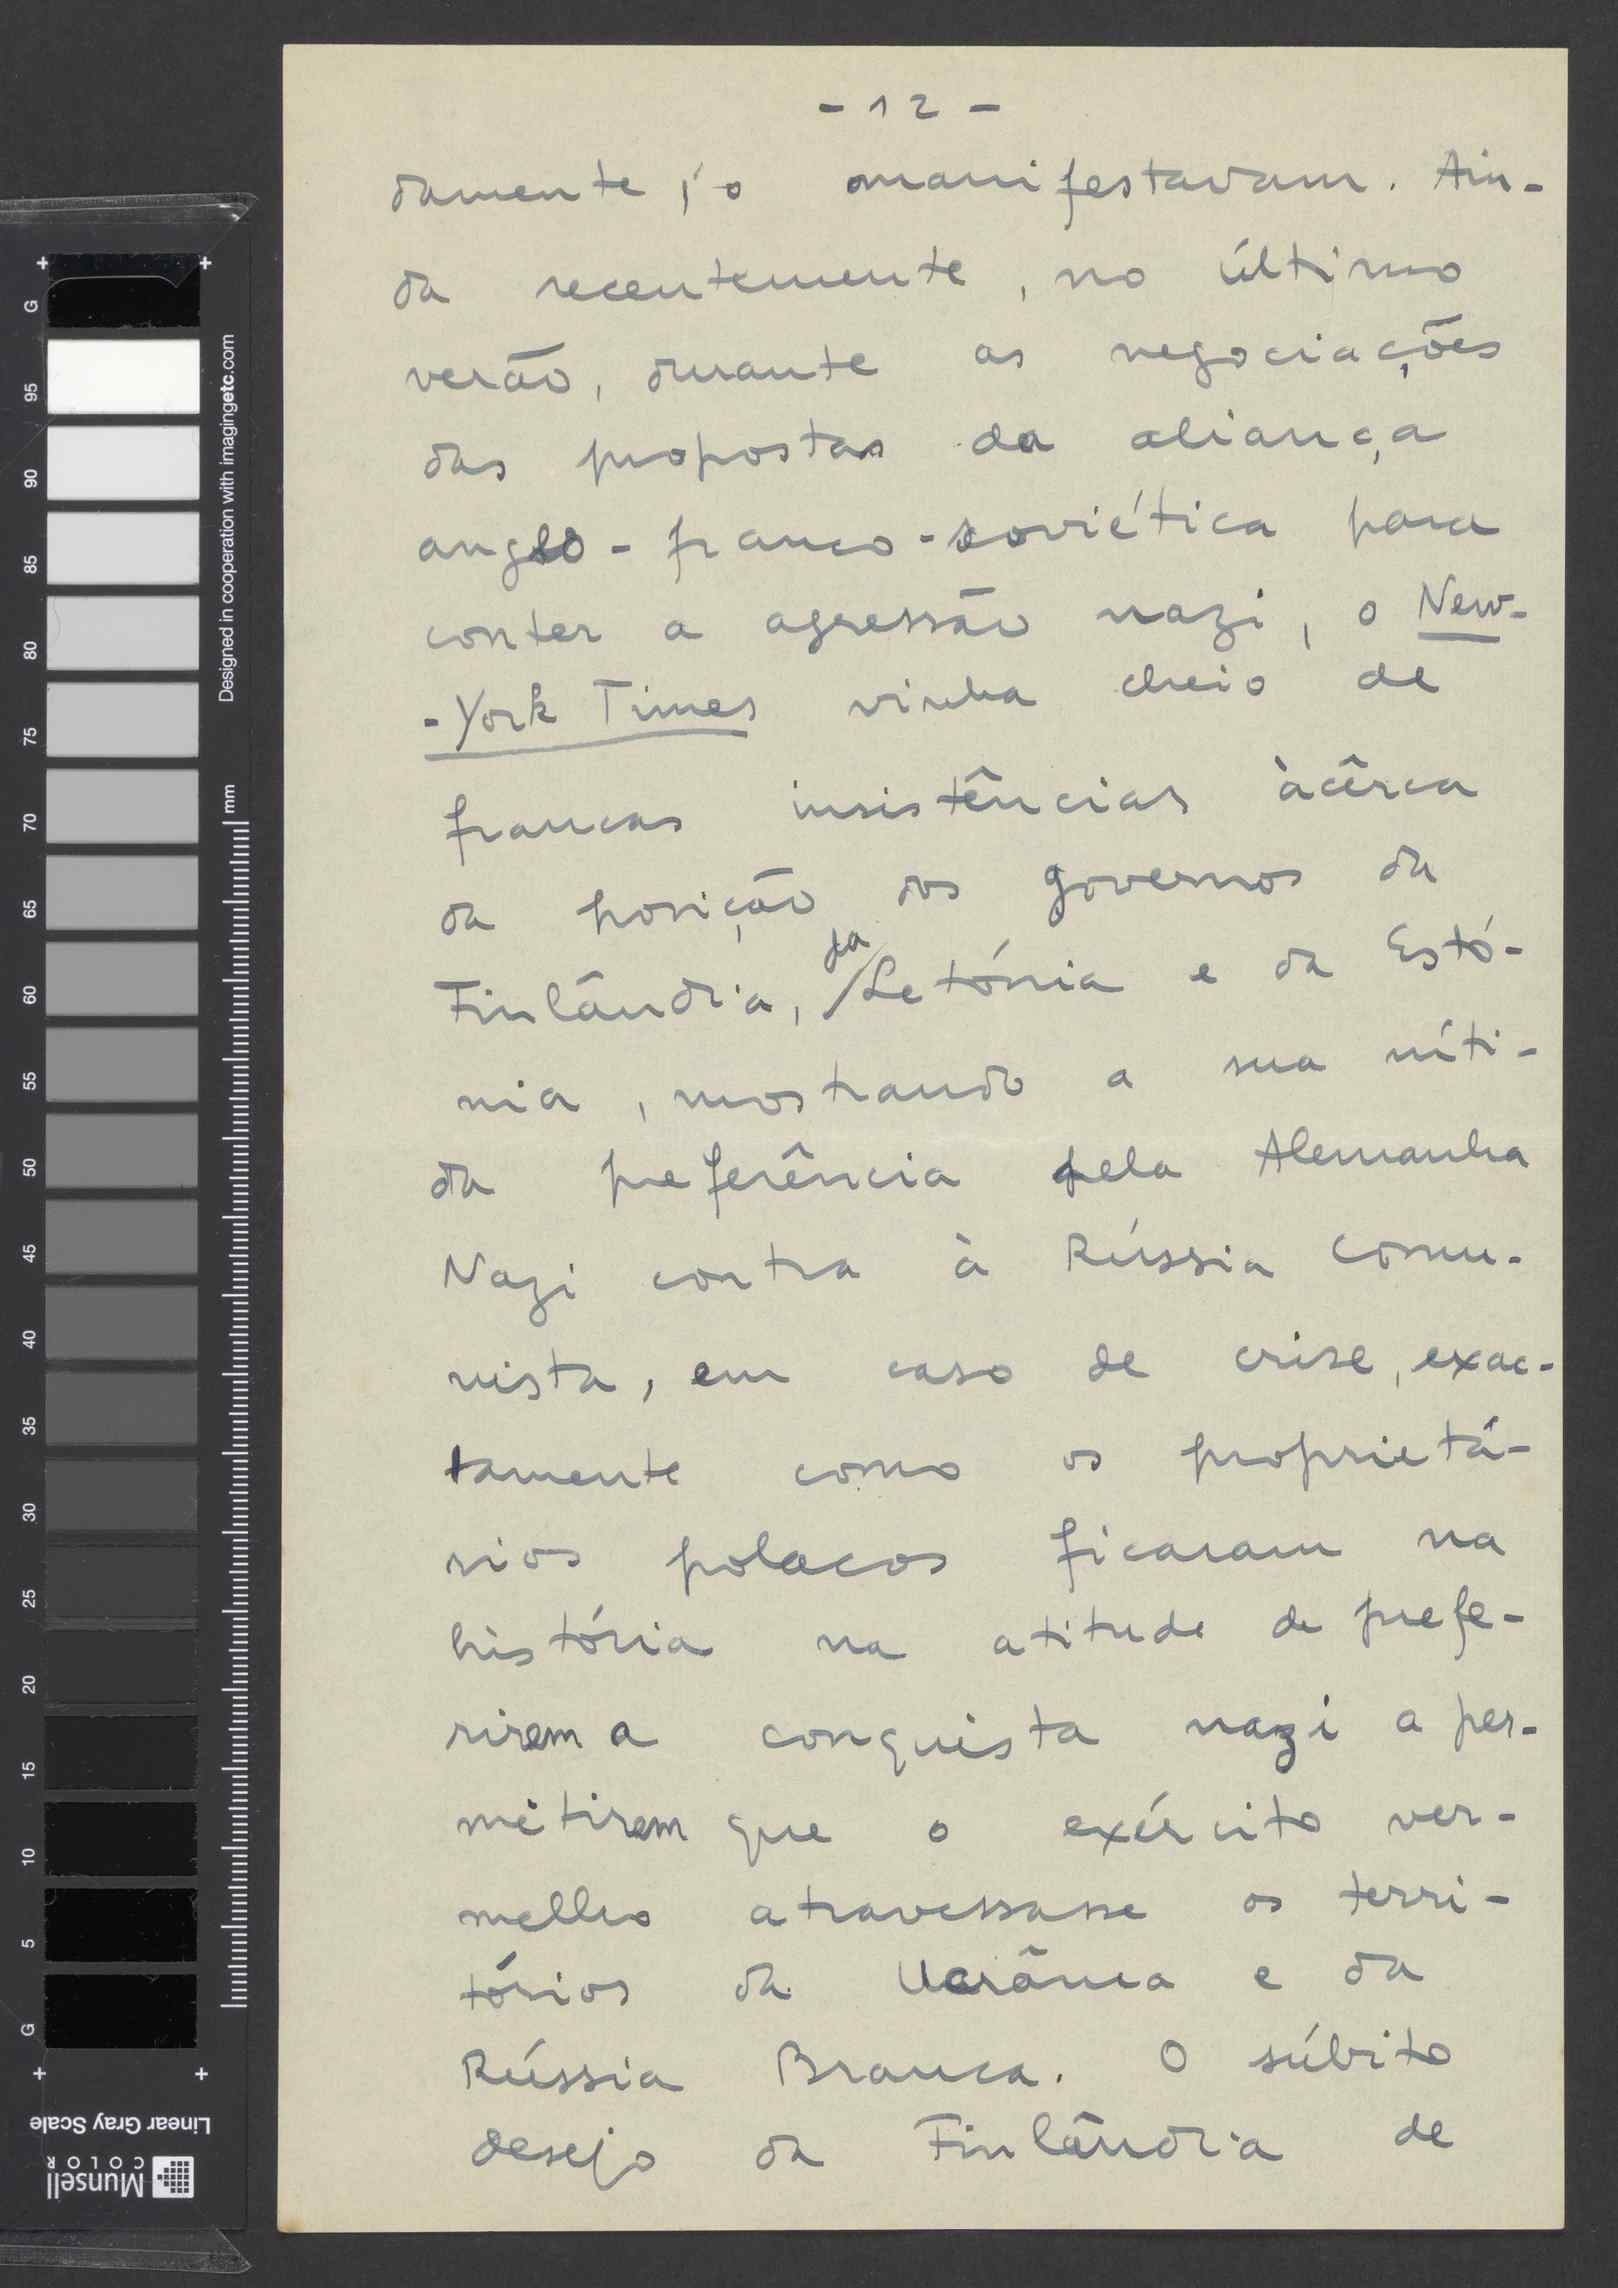 - 12 -
damente, o manifestavam. Ain-
da recentemente, no último
verão, durante as negociações
das propostas da aliança
anglo-franco-soviética para
conter a agressão nazi, o New-
-York Times vinha cheio de
francas insistências àcêrca
da posição dos governos da
Finlândia, da Letónia e da Estó-
nia, mostrando a sua níti-
da preferência pela Alemanha
Nazi contra à Rússia comu-
nista, em caso de crise, exac-
tamente como os proprietá-
rios polacos ficaram na
história na atitude de prefe-
rirem a conquista nazi a per-
mitirem que o exército ver-
melho atravessasse os terri-
tórios da Ucrânia e da
Rússia Branca. O súbito
desejo da Finlândia de
G 95 90 85 80 75 70 65 60 55 50 45 40 35 30 25 20 15 10 5 G
Designed in cooperation with imagingetc.com
mm
Linear Gray Scale
Munsell
COLOR